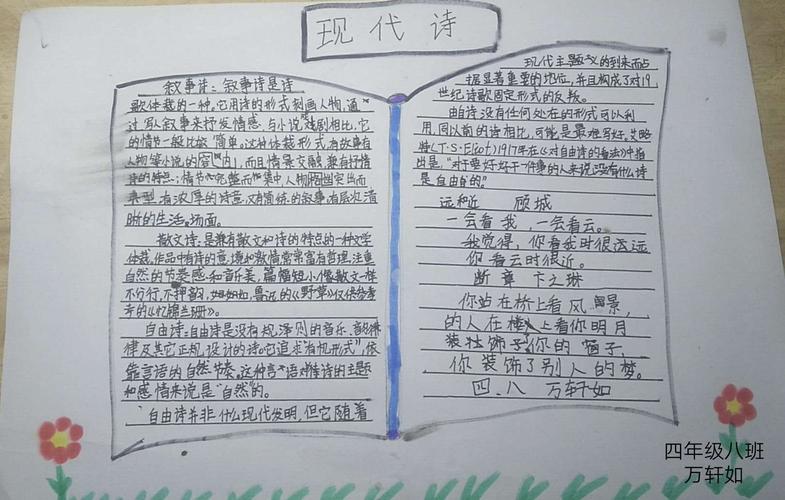 现代诗
叙事诗:叙事诗是诗
歌体裁的一种。它用诗的形式刻画人物,通
过写人叙事来抒发情感,与小说戏剧相比,它
的情节一般比较简单。这种体裁形式有故事有
人物等小说的容内,而且情景交融,兼有抒情
诗的特点;情节完整而集中,人物性突出而
典型,有浓厚的诗意,又有简练的叙事,有层次清
晰的生活。场面。
散文诗:是兼有散文和诗的特点的一种文学
体裁,作品中有诗的意境和激情常常富有哲理,注重
自然的节奏感和音乐美,篇幅短小像散文一样
不分行,不押韵,如,鲁迅的《野草》
《忆锦兰珊》。
自由诗:自由诗是没有规泽则的音乐、音
律及其它正规,设计的诗。它追求“有机形式”,依
靠言语的自然节奏。这种言语对诗的主题
和感情来说是“自然”的。
自由诗并非什么现代发明,但它随着
现代主题义的到来而占
据显著重要的地位,并且构成了对19
世纪诗歌固定形式的反叛。
由诗没有任何处在的形式可以利
用,同以前的诗相比,可能是最难写好,艾略
特(T·S·Eliot)1917年在《对自由诗的看法》中指
出是,“对于要好好干一件事的人来说,没有什么诗
是自由自的。”
远和近 顾城
一会看我,一会看云。
我觉得,你看我时很遥远
你看云时很近。
断章 卞之琳
你站在桥上看风景,
的人在楼上看你明月
装饰了你的窗子,
你装饰了别人的梦。
四.八 万轩如
四年级八班
万轩如